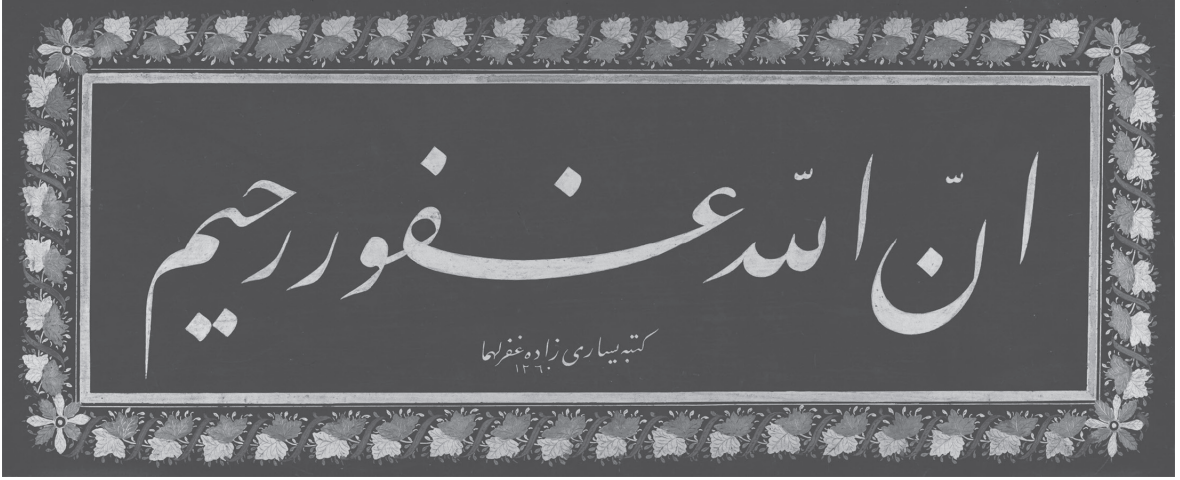 انّ اللّٰه غفور رحیم
کتبه یساری زاده غفرلهما
١٢٦٠